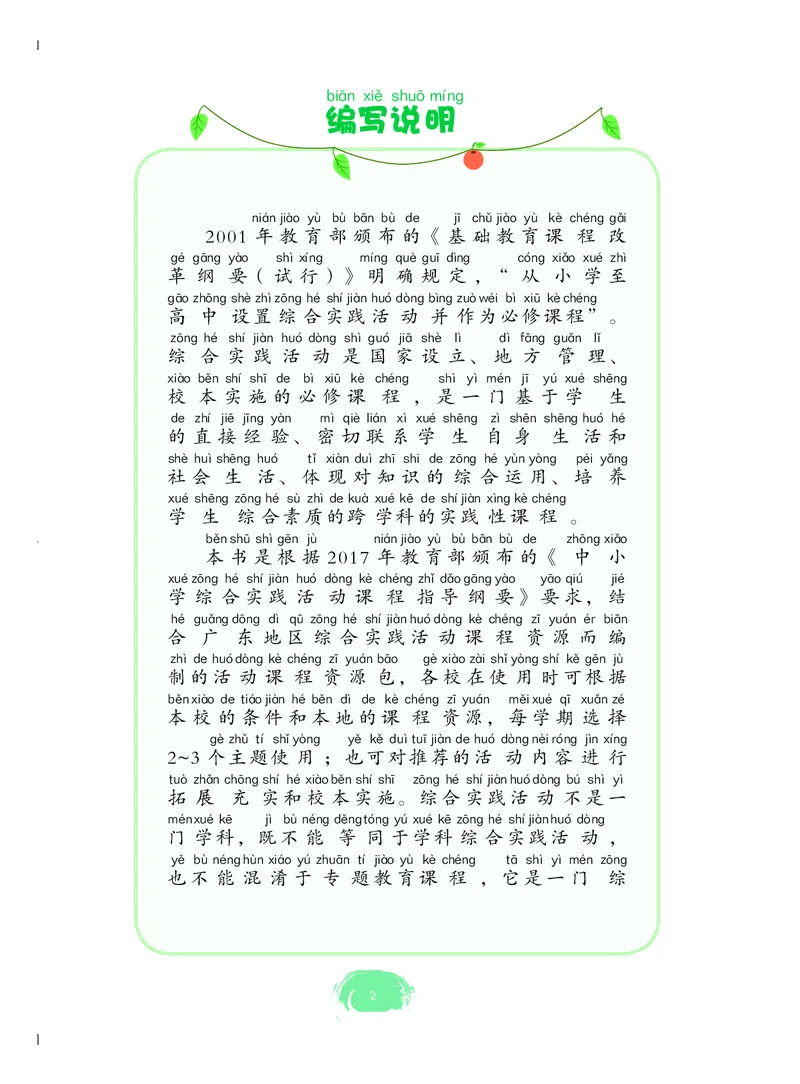 biān xiě shuō míng
编写说明
nián jiào yù bù bān bù de jī chǔ jiào yù kè chéng gǎi
2001 年教育部颁布的《基础教育课程改
gé gāng yào shì xíng míng què guī dìng cóng xiǎo xué zhì
革纲要（试行）》明确规定，“从小学至
gāo zhōng shè zhì zōng hé shí jiàn huó dòng bìng zuò wéi bì xiū kè chéng
高中设置综合实践活动并作为必修课程”。
zōng hé shí jiàn huó dòng shì guó jiā shè lì dì fāng guǎn lǐ
综合实践活动是国家设立、地方管理、
xiào běn shí shī de bì xiū kè chéng shì yì mén jī yú xué shēng
校本实施的必修课程，是一门基于学生
de zhí jiē jīng yàn mì qiè lián xì xué shēng zì shēn shēng huó hé
的直接经验、密切联系学生自身生活和
shè huì shēng huó tǐ xiàn duì zhī shi de zōng hé yùn yòng péi yǎng
社会生活、体现对知识的综合运用、培养
xué shēng zōng hé sù zhì de kuà xué kē de shí jiàn xìng kè chéng
学生综合素质的跨学科的实践性课程。
běn shū shì gēn jù nián jiào yù bù bān bù de zhōng xiǎo
本书是根据 2017 年教育部颁布的《中小
xué zōng hé shí jiàn huó dòng kè chéng zhǐ dǎo gāng yào yāo qiú jié
学综合实践活动课程指导纲要》要求，结
hé guǎng dōng dì qū zōng hé shí jiàn huó dòng kè chéng zī yuán ér biān
合广东地区综合实践活动课程资源而编
zhì de huó dòng kè chéng zī yuán bāo gè xiào zài shǐ yòng shí kě gēn jù
制的活动课程资源包，各校在使用时可根据
běn xiào de tiáo jiàn hé běn dì de kè chéng zī yuán měi xué qī xuǎn zé
本校的条件和本地的课程资源，每学期选择
gè zhǔ tí shǐ yòng yě kě duì tuī jiàn de huó dòng nèi róng jìn xíng
2~3 个主题使用；也可对推荐的活动内容进行
tuò zhǎn chōng shí hé xiào běn shí shī zōng hé shí jiàn huó dòng bú shì yì
拓展充实和校本实施。综合实践活动不是一
mén xué kē jì bù néng děng tóng yú xué kē zōng hé shí jiàn huó dòng
门学科，既不能等同于学科综合实践活动，
yě bù néng hùn xiáo yú zhuān tí jiào yù kè chéng tā shì yì mén zōng
也不能混淆于专题教育课程，它是一门综
2